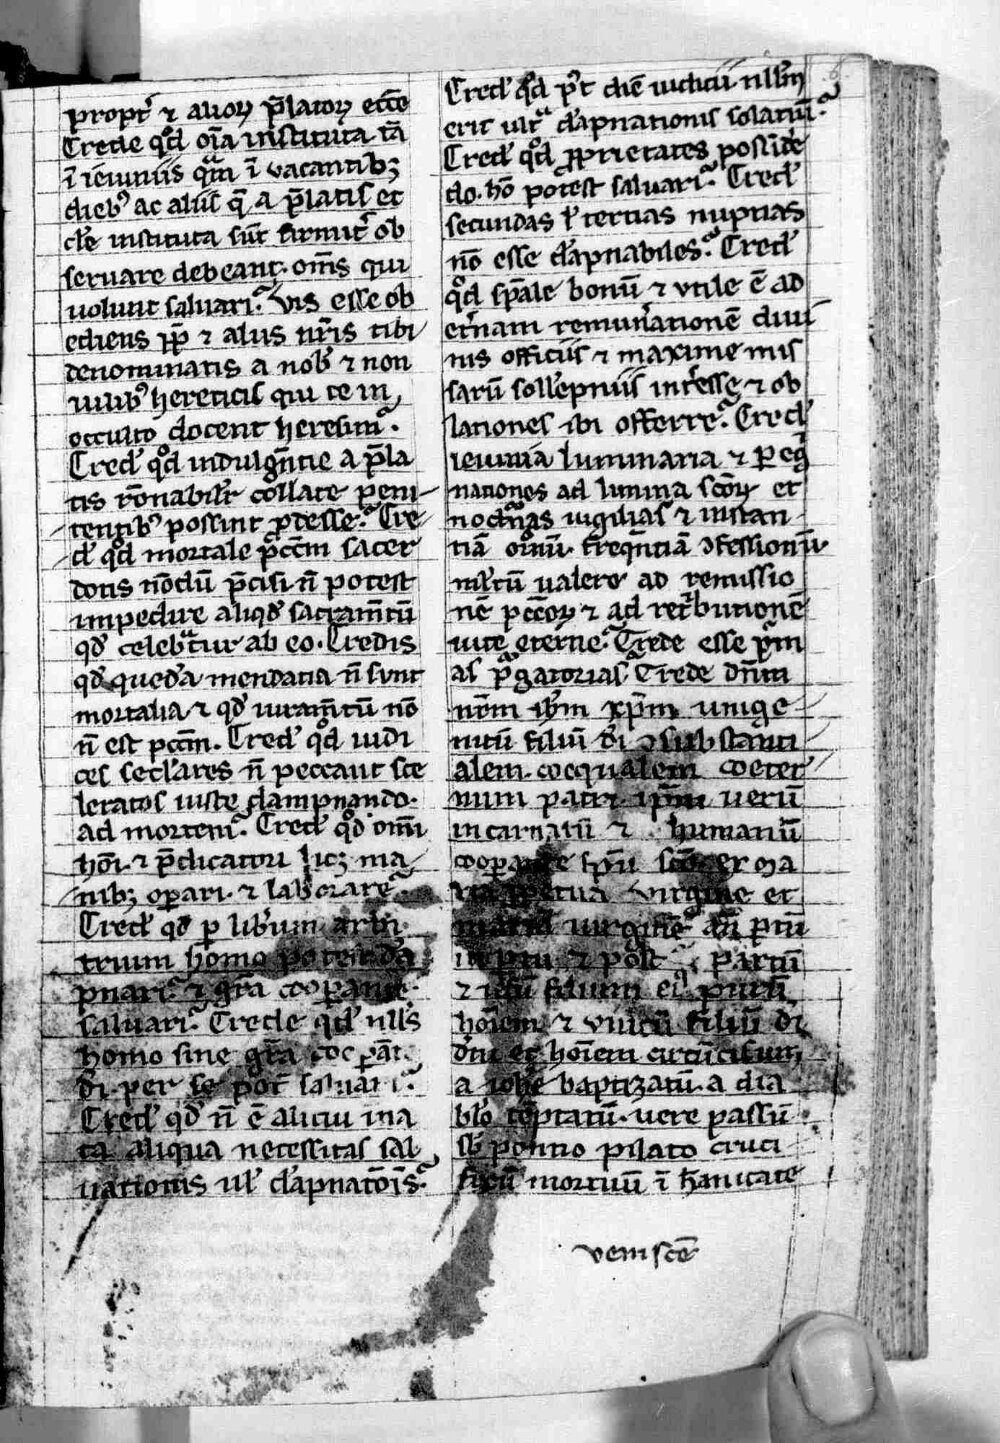 propt᷑ ⁊ alioꝝ p̄latoꝝ ecc̄e
Crede qͦd oīa instituta tā
ī ieiuniis qͣm ī vacantibꝫ
diebꝰ ac aliis q̄ a p̄latis et
cl̄e instituta sūt firmit᷑ ob
seruare debeant. om̄s qui
uolunt saluari. Vis esse ob
ediens pp̄ ⁊ aliis nr̄is tibi
denominatis a nob̄ ⁊ non
hereticis qui te in
occulto docent heresim.
Cred̄ qͦd indulgn̄tie a p̄la
tis rōnabilit᷑ collate peni
tentibꝰ possint ꝓdesse. Cre
d̄ qͦd mortale pcc̄m sacer
dotis nōdū p̄cisi n̄ potest
impedire aliqd̄ sacram̄tū
qd̄ celebᷓtur ab eo. Credis
qd̄ queda mendatia n̄ sunt
mortalia ⁊ qd̄ iuram̄tū nō
n̄ est pccm̄. Cred̄ qͦd iudi
ces secl̄ares n̄ peccant sce
leratos iuste dampnando.
ad mortem. Cred̄ qͦd om̄i
hōi ⁊ p̄dicatori licꝫ ma
nibꝫ oꝑari ⁊ laborare.
Cred̄ qd̄ ꝑ lib̄um arbi
trium homo potest da
pnari. ⁊ gr̄a cooꝑante
saluari. Crede qd̄ nll̄s
homo sine gr̄a cooꝑāt.
d̄i per se pot̄ saluari.
Cred̄ qd̄ n̄ ē alicui ina
ta aliqua necessitas sal
uationis ul̄ dapnatōis.
Cred̄ qͦd p᷑t diē iudicii nll̄m
erit ult᷑ dapnationis solatiū.
Cred̄ qͦd ꝓprietates possidē
do. hō potest saluari. Cred̄
secundas l̄ tertias nuptias
nō esse dapnabiles. Cred̄
qͦd sp̄ale bonū ⁊ vtile ē ad
et᷑nam remun᷑ationē diui
nis officiis ⁊ maxime mis
sarū sollepniis int᷑esse ⁊ ob
lationes ibi offerre. Cred̄
ieiunia luminaria ⁊ ꝑeg᷑
nationes ad limina sc̄oꝝ et
noct᷑nas uigilias ⁊ instan
tiā or̄onū freqn̄tiā ꝯfessionū
m᷑itū ualere ad remissio
nē pcc̄oꝝ ⁊ ad ret᷑butionē
uite eterne. Crede esse p̄m
as p᷑gatorias. Crede dn̄m
nr̄m ih̄m xp̄m unige
nitū filiū d̄i ꝯsubstanti
alem. coequalem coeter
num patri. ip̄m uerū
incarnatū ⁊ humanū
cooꝑante sp̄u sc̄o ex ma
ria ꝑpetua virgine et
uirginē an̄ ꝑtū
in ꝑtu ⁊ post ꝑartū
filium eiꝰ purū
hōiem ⁊ vnicū filiū d̄i
d̄m et hōiem circūcisum
a ioh̄e baptizatū. a dia
bl̄o tēptatū. uere passū
sb̄ pontio pilato cruci
fixū mortuū ī hūanitate
veni sc̄e